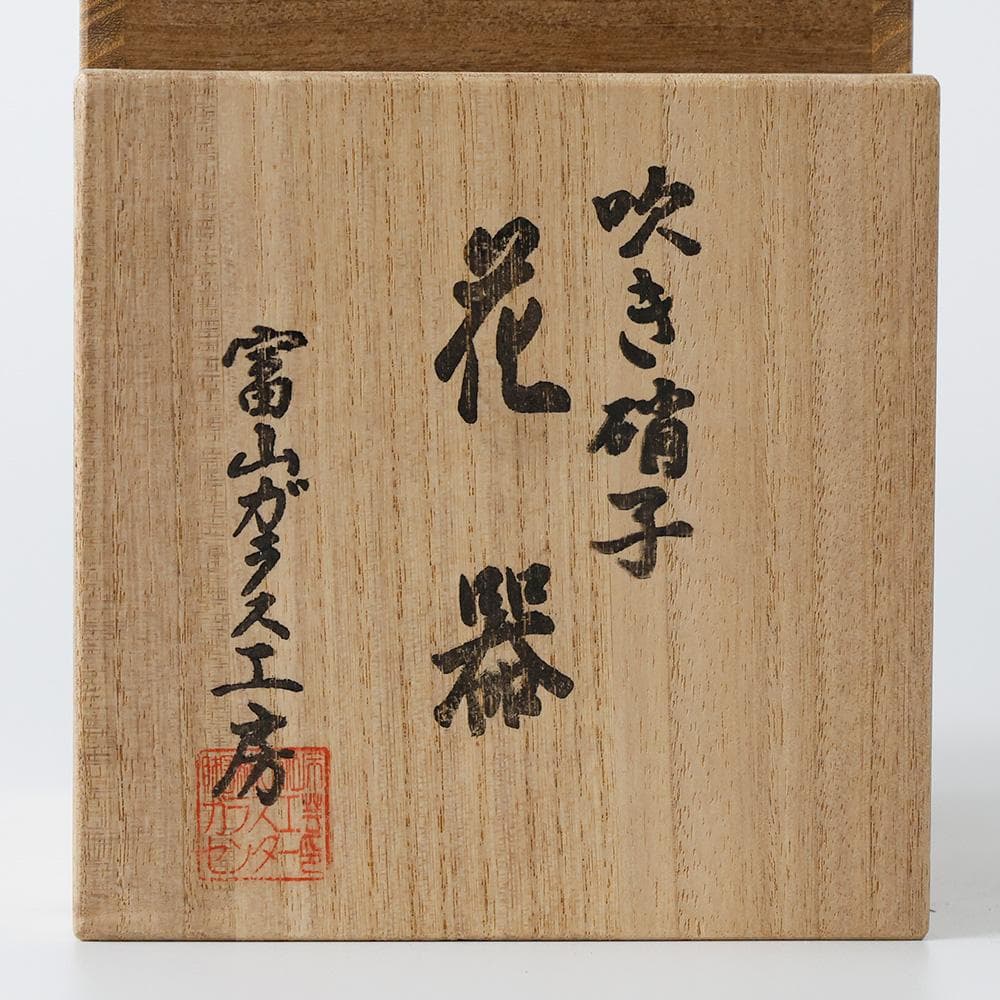 吹き硝子
花器
富山ガラス工房
ガラス工
センター